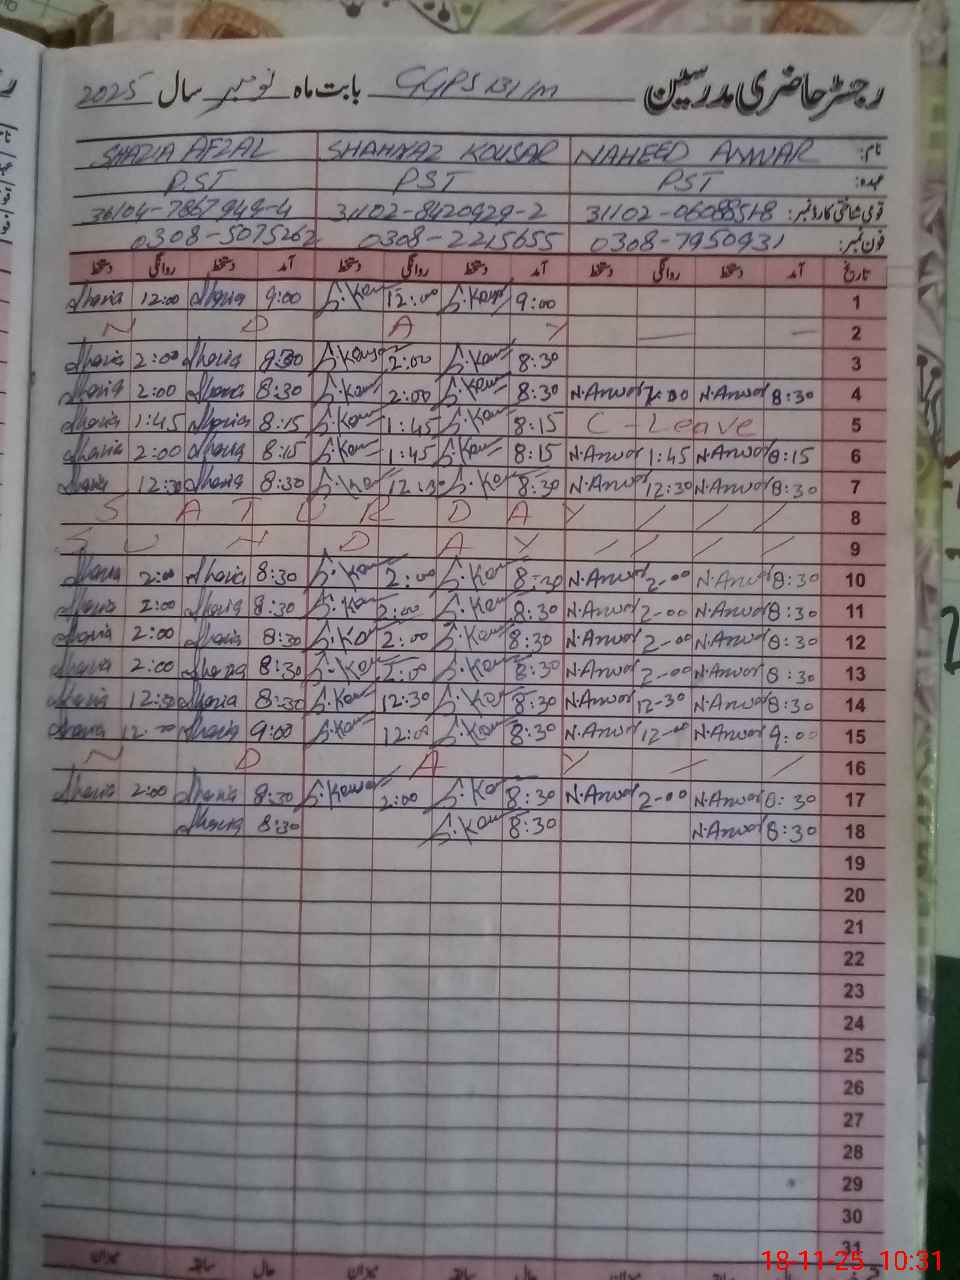 رجسٹر حاضری مدرسین GGPS 131/m بابت ماہ نومبر سال 2025
نام: NAHEED ANWAR SHAHNAZ KOUSAR SHAZIA AFZAL
عہدہ: P.ST P.ST P.ST
قومی شناختی کارڈ نمبر: 31102-8420929-2 36104-7867949-4
فون نمبر: 0308-7950931 0308-2215655 0308-5075262
تاریخ آمد دستخط روانگی دستخط آمد دستخط روانگی دستخط
Shazia 12:00 Shazia 9:00 S.Kou 12:00 S.Kou 9:00 1
N D A Y 2
Shazia 2:00 Shazia S.Kou 2:00 S.Kou 8:30 3
Shazia 2:00 Shazia 8:30 S.Kou 2:00 S.Kou 8:30 N.Anwar 2:00 N.Anwar 8:30 4
Shazia 1:45 Shazia 8:15 S.Kou 1:45 S.Kou 8:15 C-Leave 5
Shazia 2:00 Shazia 8:15 S.Kou 1:45 S.Kou 8:15 N.Anwar 1:45 N.Anwar 8:15 6
Shazia 12:30 Shazia 8:30 S.Kou 12:30 S.Kou 8:30 N.Anwar 12:30 N.Anwar 8:30 7
S A T U R D A Y 8
S U N D A Y 9
Shazia 2:00 Shazia 8:30 S.Kou 2:00 S.Kou 8:30 N.Anwar 2-00 N.Anwar 8:30 10
Shazia 2:00 Shazia 8:30 S.Kou 2:00 S.Kou 8:30 N.Anwar 2-00 N.Anwar 8:30 11
Shazia 2:00 Shazia 8:30 S.Kou 2:00 S.Kou 8:30 N.Anwar 2-00 N.Anwar 8:30 12
Shazia 2:00 Shazia 8:30 S.Kou 2:00 S.Kou 8:30 N.Anwar 2-00 N.Anwar 8:30 13
Shazia 12:30 Shazia 8:30 S.Kou 12:30 S.Kou 8:30 N.Anwar 12-30 N.Anwar 8:30 14
Shazia 12:00 Shazia 9:00 S.Kou 12:00 S.Kou 8:30 N.Anwar 12-00 N.Anwar 9:00 15
N D A Y 16
Shazia 2:00 Shazia 8:30 S.Kousar 2:00 S.Kou 8:30 N.Anwar 2-00 N.Anwar 8:30 17
Shazia 8:30 S.Kou 8:30 N.Anwar 8:30 18
19
20
21
22
23
24
25
26
27
28
29
30
31
میزان سابقہ حال میزان سابقہ حال
18-11-25 10:31